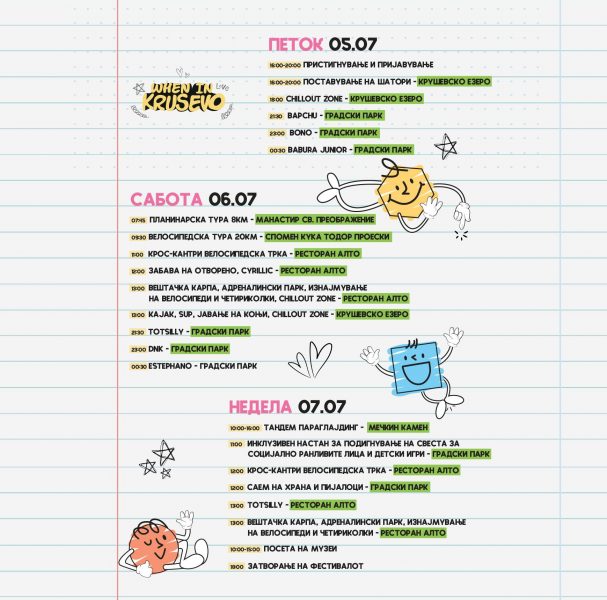 ПЕТОК 05.07
16:00-20:00 ПРИСТИГНУВАЊЕ И ПРИЈАВУВАЊЕ
16:00-20:00 ПОСТАВУВАЊЕ НА ШАТОРИ - КРУШЕВСКО ЕЗЕРО
WHEN IN
KRUSEVO
LOVE
18:00 CHILLOUT ZONE - КРУШЕВСКО ЕЗЕРО
21:30 ВАРCHU - ГРАДСКИ ПАРК
23:00 BONO - ГРАДСКИ ПАРК
00:30 BABURA JUNIOR - ГРАДСКИ ПАРК
САБОТА 06.07
07:45 ПЛАНИНАРСКА ТУРА 8КМ - МАНАСТИР СВ. ПРЕОБРАЖЕНИЕ
09:30 ВЕЛОСИПЕДСКА ТУРА 20КМ - СПОМЕН КУКА ТОДОР ПРОЕСКИ
11:00 КРОС-КАНТРИ ВЕЛОСИПЕДСКА ТРКА - РЕСТОРАН АЛТО
12:00 ЗАБАВА НА ОТВОРЕНО, CYRILLIC - РЕСТОРАН АЛТО
13:00 ВЕШТАЧКА КАРПА, АДРЕНАЛИНСКИ ПАРК, ИЗНАЈМУВАЊЕ
НА ВЕЛОСИПЕДИ И ЧЕТИРИКОЛКИ, CHILLOUT ZONE - РЕСТОРАН АЛТО
13:30 КАЈАК, SUP, ЈАВАЊЕ НА КОЊИ, CHILLOUT ZONE - КРУШЕВСКО ЕЗЕРО
21:30 TOTSILLY - ГРАДСКИ ПАРК
23:00 DNK - ГРАДСКИ ПАРК
00:30 ESTEPHANO - ГРАДСКИ ПАРК
НЕДЕЛА 07.07
10:00-16:00 ТАНДЕМ ПАРАГЛАЈДИНГ - МЕЧКИН КАМЕН
11:00 ИНКЛУЗИВЕН НАСТАН ЗА ПОДИГНУВАЊЕ НА СВЕСТА ЗА
СОЦИЈАЛНО РАНЛИВИТЕ ЛИЦА И ДЕТСКИ ИГРИ - ГРАДСКИ ПАРК
12:00 КРОС-КАНТРИ ВЕЛОСИПЕДСКА ТРКА - РЕСТОРАН АЛТО
12:00 САЕМ НА ХРАНА И ПИЈАЛОЦИ - ГРАДСКИ ПАРК
13:00 TOTSILLY - РЕСТОРАН АЛТО
13:00 ВЕШТАЧКА КАРПА, АДРЕНАЛИНСКИ ПАРК, ИЗНАЈМУВАЊЕ
НА ВЕЛОСИПЕДИ И ЧЕТИРИКОЛКИ - РЕСТОРАН АЛТО
10:00-15:00 ПОСЕТА НА МУЗЕИ
19:00 ЗАТВОРАЊЕ НА ФЕСТИВАЛОТ